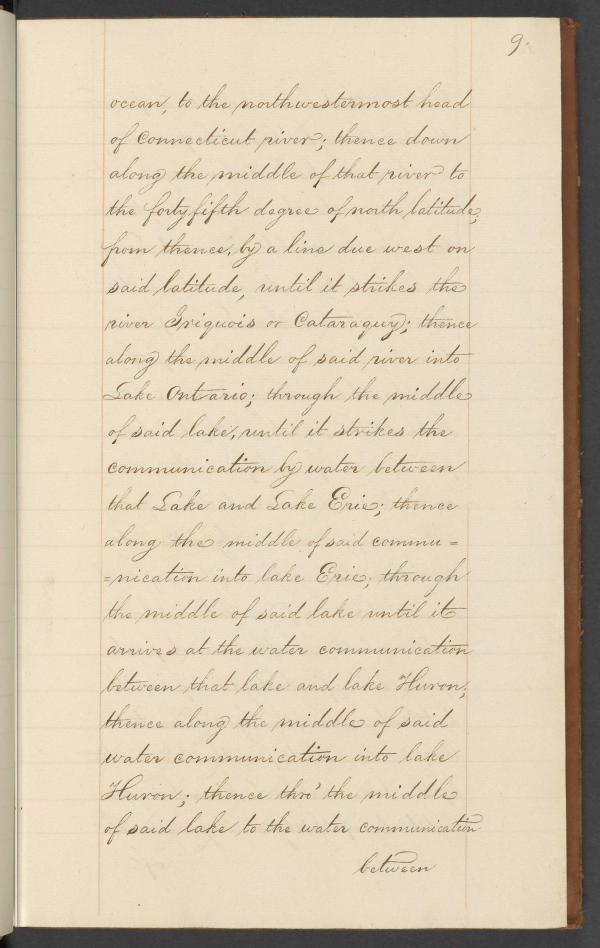 9.
ocean, to the northwesternmost head
of Connecticut river; thence down
along the middle of that river to
the forty fifth degree of north latitude;
from thence, by a line due west on
said latitude, until it strikes the
river Iriquois or Cataraquy; thence
along the middle of said river into
Lake Ontario; through the middle
of said lake, until it strikes the
communication by water between
that Lake and Lake Erie; thence
along the middle of said commu=
=nication into lake Erie; through
the middle of said lake until it
arrives at the water communication
between that lake and lake Huron;
thence along the middle of said
water communication into lake
Huron; thence thro' the middle
of said lake to the water communication
between